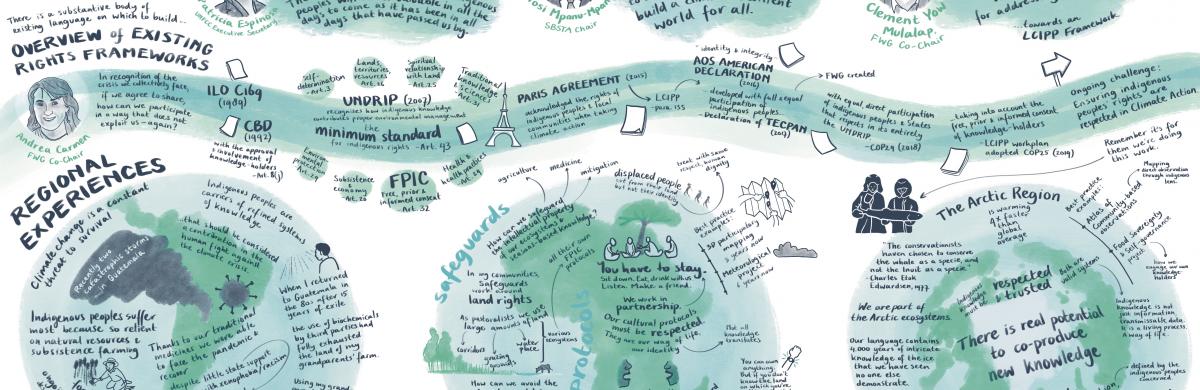 There is a substantive body of
existing language on which to build...
Patricia Espinosa
Executive Secretary
in all the
days, to come as it has been in all
the days that have passed us by.
SBSTA Chair
build a
world for all.
Clement Yow
Mulalap.
FWG Co-Chair
for address
...towards an
LCIPP Framework
OVERVIEW of EXISTING
RIGHTS FRAMEWORKS
Andrea Carmen
FWG Co-Chair
In recognition of the
crisis we collectively face,
if we agree to share,
how can we participate
in a way that does not
exploit us-again?
ILO C169
(1989)
CBD
(1992)
with the approval
& involvement of
knowledge
-Art. 8(j)
Self-
determination
-Art. 3
Lands,
territories,
resources
-Art. 26
Spiritual
relationship
with land
-Art. 25
Traditional
knowledge
& sciences
-Art. 31
UNDRIP (2007)
recognises how indigenous knowledge
contributes proper environmental management
the
minimum standard
for indigenous rights -Art. 43
Subsistence
economy
-Art. 20
FPIC
Free, prior &
informed consent
Art. 32
Health &
health practices
Art. 24
PARIS AGREEMENT (2015)
acknowledged the rights of
indigenous peoples & local
communities when taking
climate action
LCIPP
para. 135
"identity & integrity"
AOS AMERICAN
DECLARATION
(2016)
developed with full & equal
participation of
indigenous peoples
Declaration of TECPAN
(2017)
FWG created
with equal, direct participation
of indigenous peoples & states
that respects in its entirety
the UNDRIP
-COP24 (2018)
taking into account the
free, prior & informed consent
of knowledge-holders
-LCIPP workplan
adopted COP25 (2019)
Ongoing challenge:
Ensuring indigenous
peoples' rights are
respected in Climate Action
Remember it's for
them we're doing
this work.
REGIONAL
EXPERIENCES
Climate change is a constant
threat to survival
Recently two
catastrophic storms
in Guatemala
Indigenous peoples are
carriers of refined systems
of knowledge
...that should be considered
a contribution to the
human right against
climate crisis.
Indigenous peoples suffer
most because so reliant
on natural resources &
subsistence farming
Thanks to our traditional
medicines we were able
to face the pandemic &
recover
despite little state support
with xenophobia/racism
When I returned
to Guatemala in
the 80s after 15
years of exile
the use of biochemicals
by other parties had
fully exhausted
the land of my
grandparents' farm.
Using my grand
safeguards
protocols
agriculture
medicine
mitigation
How can we safeguard
intellectual property
of our ecosystems &
season-based knowledge?
all other our
protocols
In my communities,
Safeguards
work around
land rights
As pastoralists we use
large amounts of land
corridors
grazing
water
place
various
ecosystems
How can we avoid the
displaced people
cut from their land
but not their identity
treat with same
respect, human
dignity
You have to stay.
Sit down. Eat, drink with us.
Listen. Make a friend.
We work in
partnership.
Our cultural protocols
must be respected
They are our way of life,
our identity
Best practice
3D participatory
mapping
5 years now
Meteorological
project
2 years now
Not all
knowledge
translates
You can own
anything.
But if you don't
know the land
on which you're
The Arctic Region
is warming
4x faster
than the
global
average
"The conservationists
haven chosen to conserve
the whale as a specie, and
not the Inuit as a specie."
- Charles Etok
Edwardsen, 1977
We are part of
the Arctic ecosystems.
Our language contains
4,000 years of intricate
knowledge of the ice
that we have seen
no one else
demonstrate.
Indigenous
knowledge
respected
& trusted
Both are
valid systems
There is real potential
to co-produce
new knowledge
Best practice
examples:
Atlas of
Community-based
Conservations
Mapping
direct observation
through indigenous
lens.
Food Sovereignty
Self-governance
project
how we
engage our own
knowledge
holders
Indigenous
knowledge is
not just
information
transmissable
data.
It is a living process.
A way of life.
defined by the
indigenous peoples
concerned.